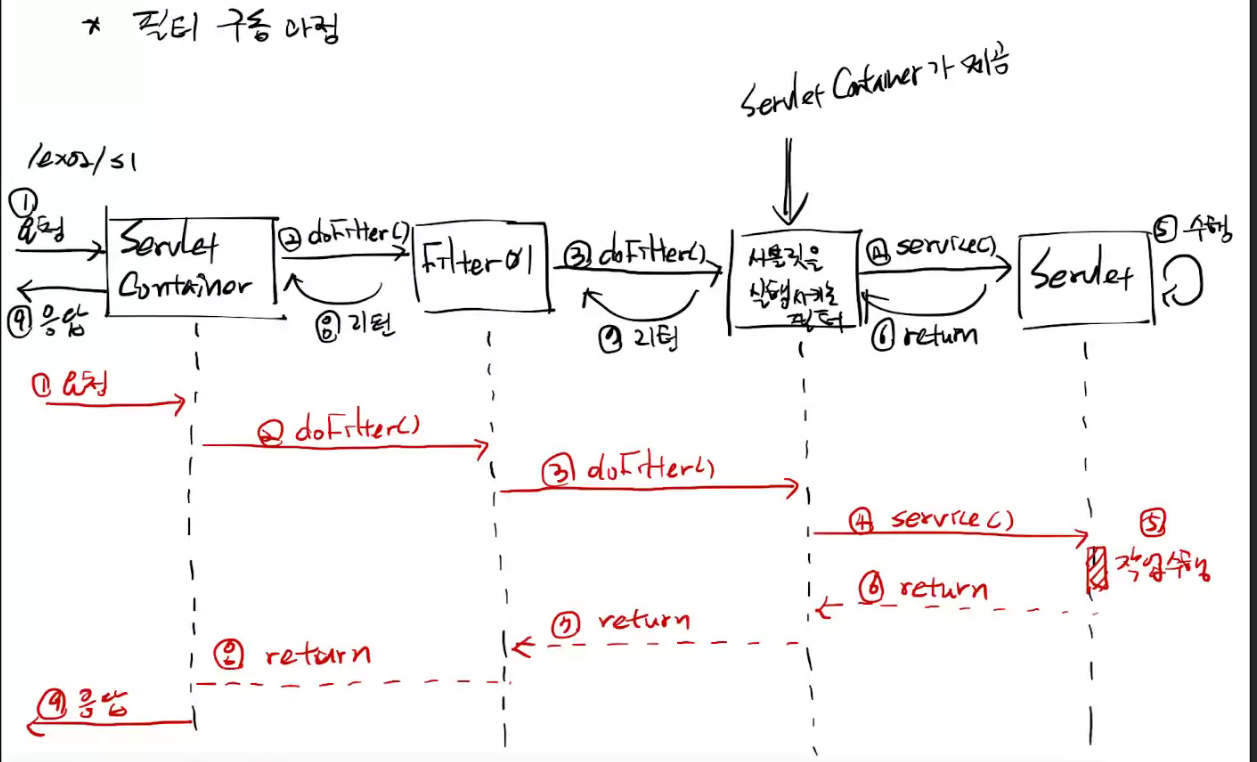 * 필터 구동 과정
Servlet Container가 제공
/ex02/s1
① 요청
Servlet Container
② doFilter()
⑧ 리턴
⑨ 응답
Filter01
③ doFilter()
⑦ 리턴
서블릿을
실행시키는
필터
④ service()
⑥ return
Servlet
⑤ 수행
① 요청
② doFilter()
③ doFilter()
④ service()
⑤
작업수행
⑥ return
⑦ return
⑧ return
⑨ 응답